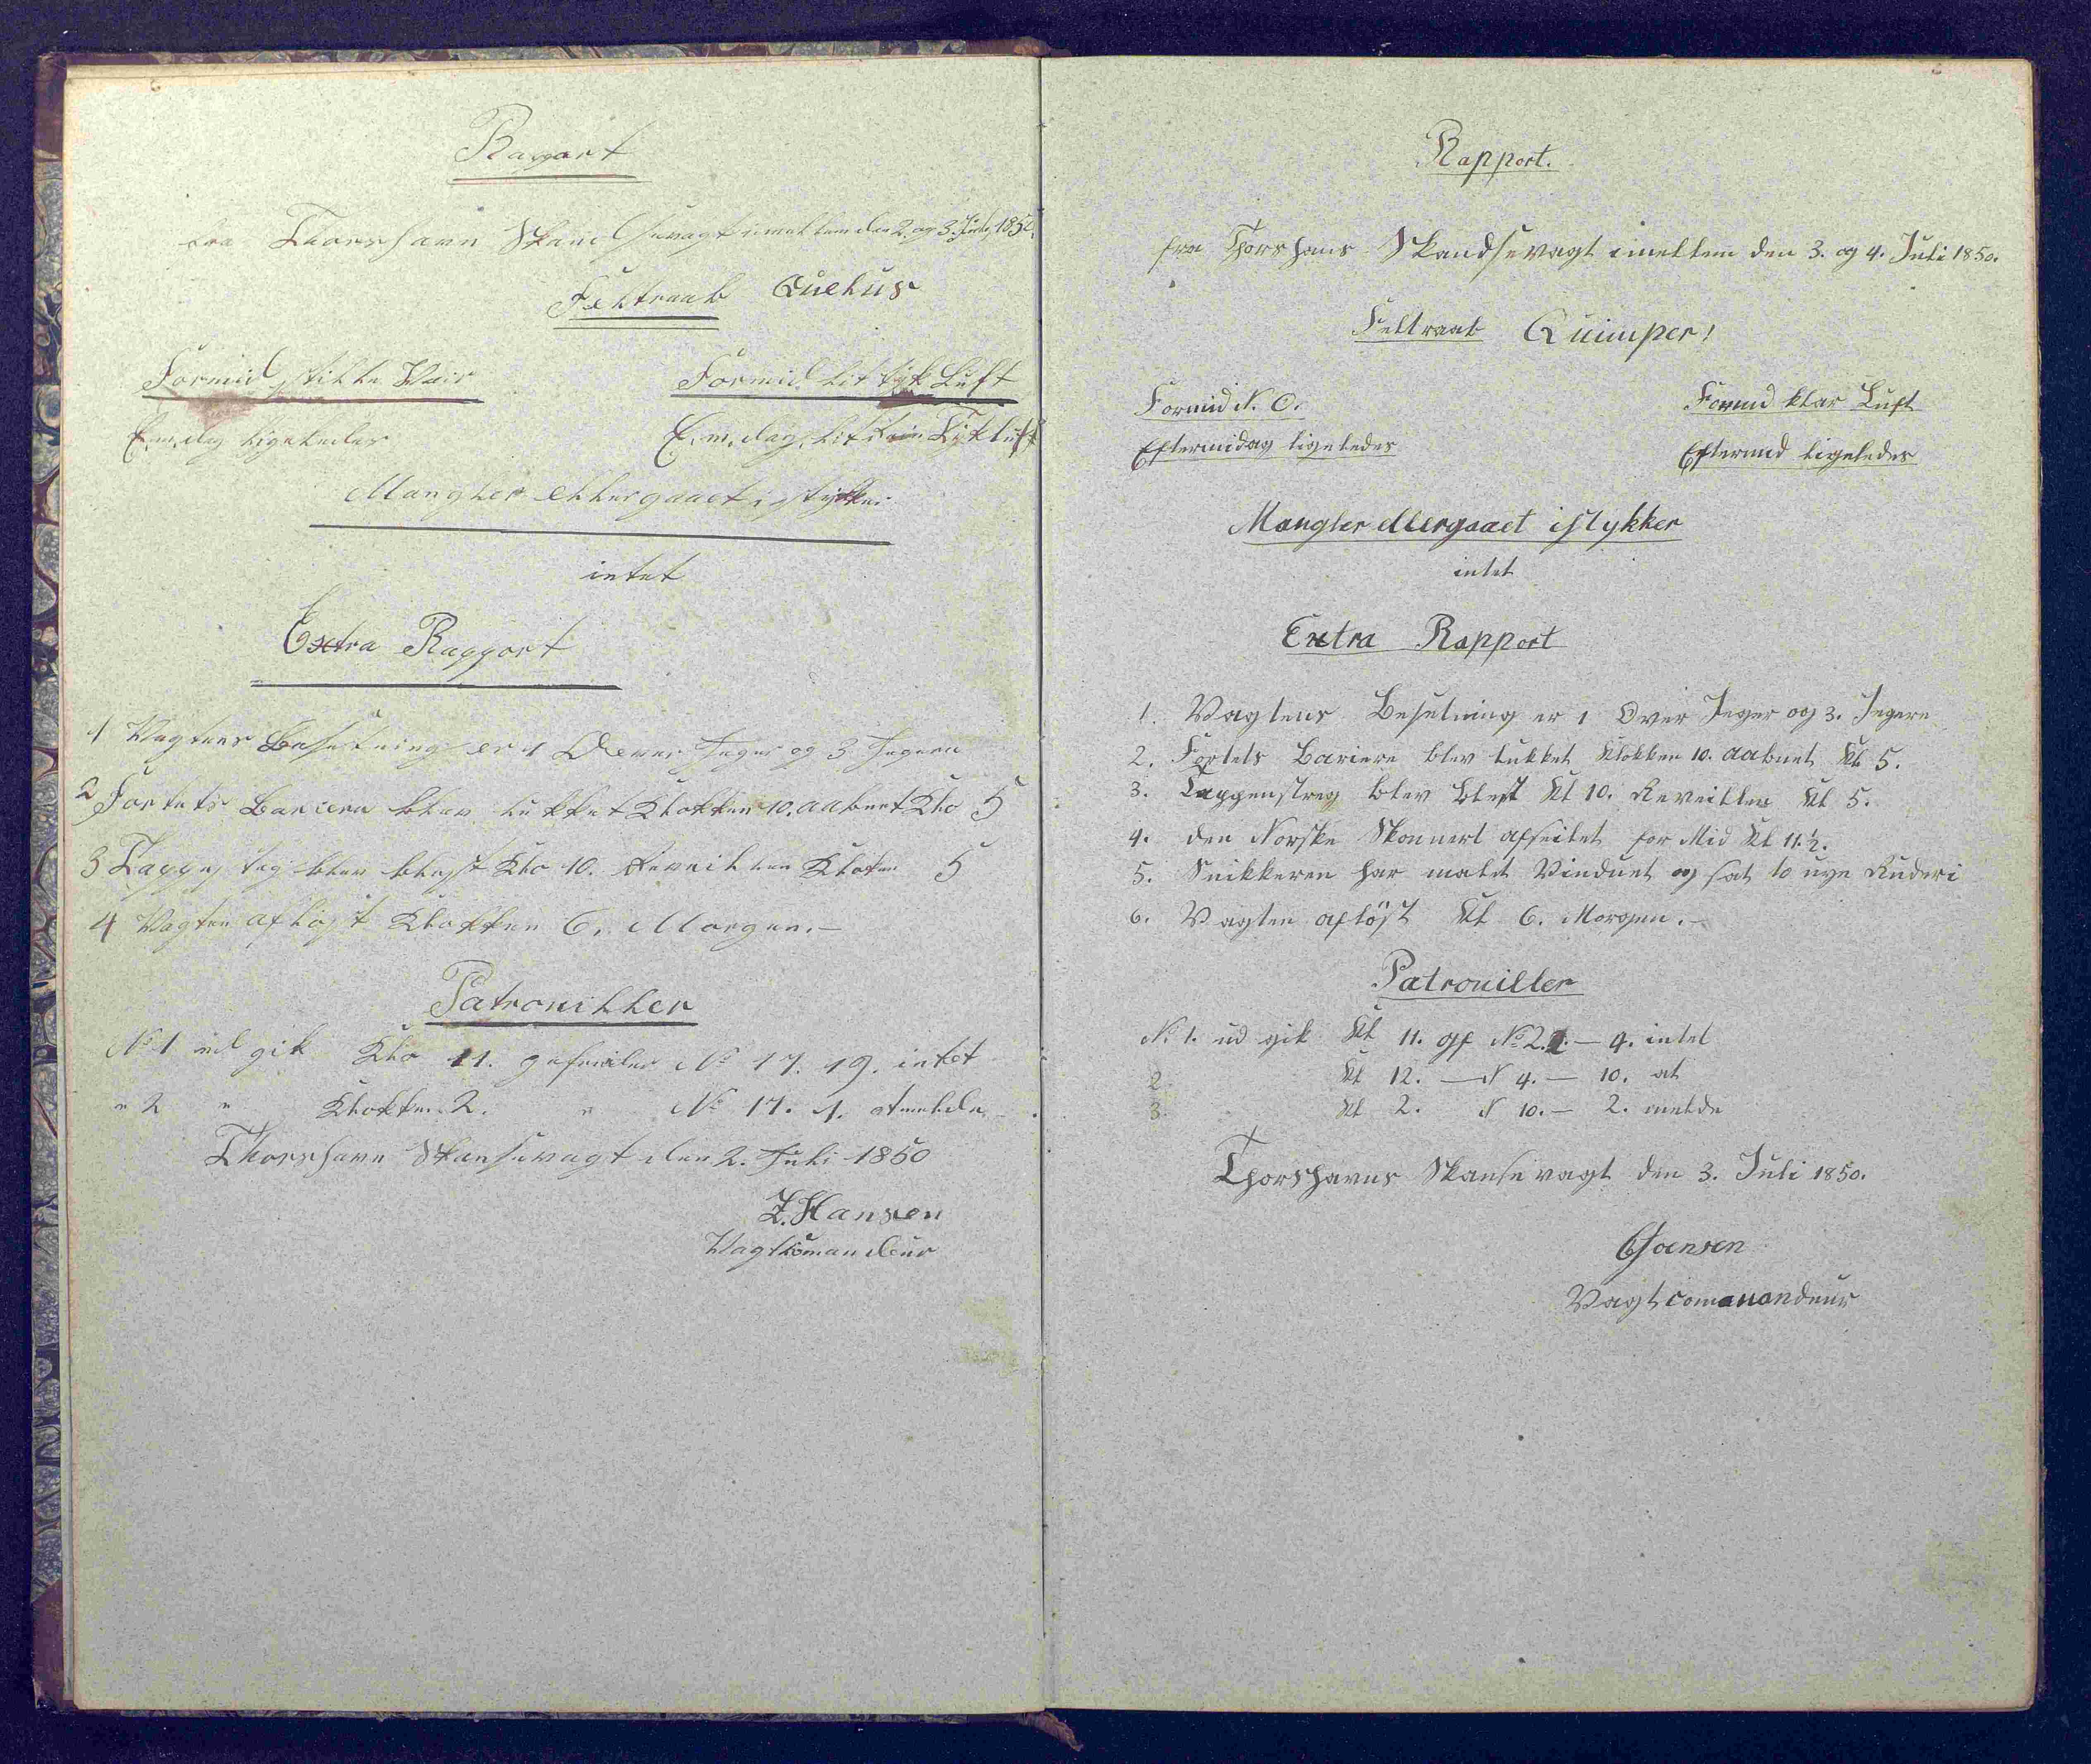 Rapport
fra Thorshavn Skandsevagt imellem den 2. og 3. Juli, 1850.
Feltraab Quelus
Formid stille Veir
Formid. lit tyk Luft
E.m.dag ligeledes
E.m.dag. lit Tykluft
Mangler ellergaaet istykker
intet
Extra Rapport
1 Vagtens Besetning er 1 Over Jeger og 3 Jegere
2 Fortets Bariere blev lukket Klokken 10. aabnet Klo 5
3 Tappestreg blev blest Klo 10. Reveillen Klokken 5
4 Vagten afløst Klokken 6. Morgen.-
Patrouiller
No 1 ud gik Klo 11. gefreider No 17. 19. intet
" 2 " Klokken 2. " No 17. 1. atmelde
Thorshavn Skansevagt den 2. Juli 1850
Z. Hansen
Vagtkomandeur
Rapport.
fra Thorshavns Skandsevagt imellem den 3. og 4. Juli 1850.
Feltraab Quimper!
Formid N. O.
Formid klar Luft
Eftermidag ligeledes
Eftermid ligeledes
Mangler ellergaaet istykker
intet
Extra Rapport
1. Vagtens Besetning er 1 Over Jeger og 3. Jegere
2. Fortets Bariere blev lukket Klokken 10. aabnet Kl 5.
3. Tappenstreg blev blest Kl 10. Reveillen Kl 5.
4. den Norske Skonnert afseilet for Mid Kl 11 1/2.
5. Snikkeren har malet Vinduet og sat to nye Ruder i
6. Vagten afløst Kl 6. Morgen.-
Patrouiller
No 1. ud gik Kl 11. gf No 2. - 4. intet
2. Kl 12. - N 4. - 10. at
3. Kl 2. N 10. - 2. melde
Thorshavns Skansevagt den 3. Juli 1850.
Joensen
Vagtcomanandeur